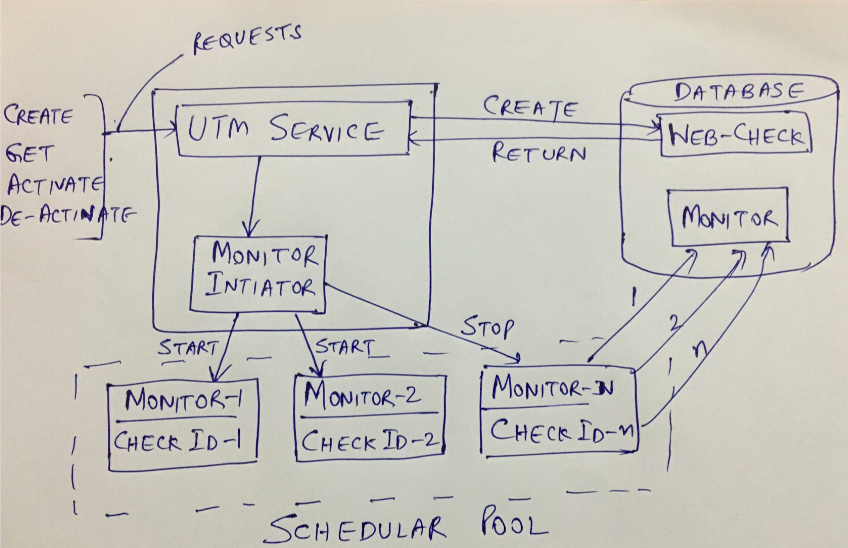 REQUESTS
CREATE
GET
ACTIVATE
DE-ACTINATE
UTM SERVICE
CREATE
RETURN
DATABASE
WEB-CHECK
MONITOR
MONITOR
INTIATOR
START
START
STOP
1
2
n
MONITOR-1
CHECK ID-1
MONITOR-2
CHECK ID-2
MONITOR-N
CHECK ID-n
SCHEDULAR POOL